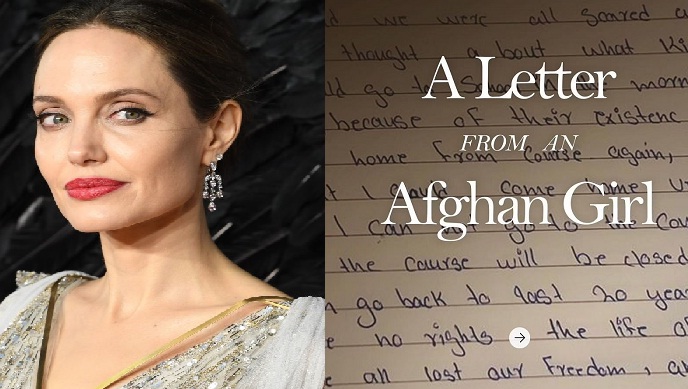 A Letter
FROM AN
Afghan Girl
we were all Scared
thought a bout what
go to
because of their existenc
home From Course again,
I could come home
I can not go to the Cou
the course will be closed
go back to last 20 year
no rights the life of
all lost our Freedom,